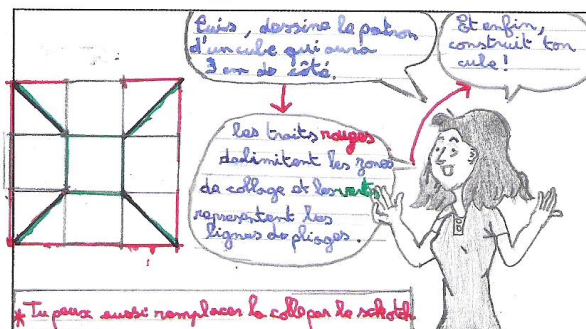 Puis, dessine le patron
d'un cube qui aura
3 cm de côté.
Et enfin,
construit ton
cube!
les traits rouges
délimitent les zones
de collage et les verts
représentent les
lignes de pliages.
* Tu peux aussi remplacer la colle par le schotch